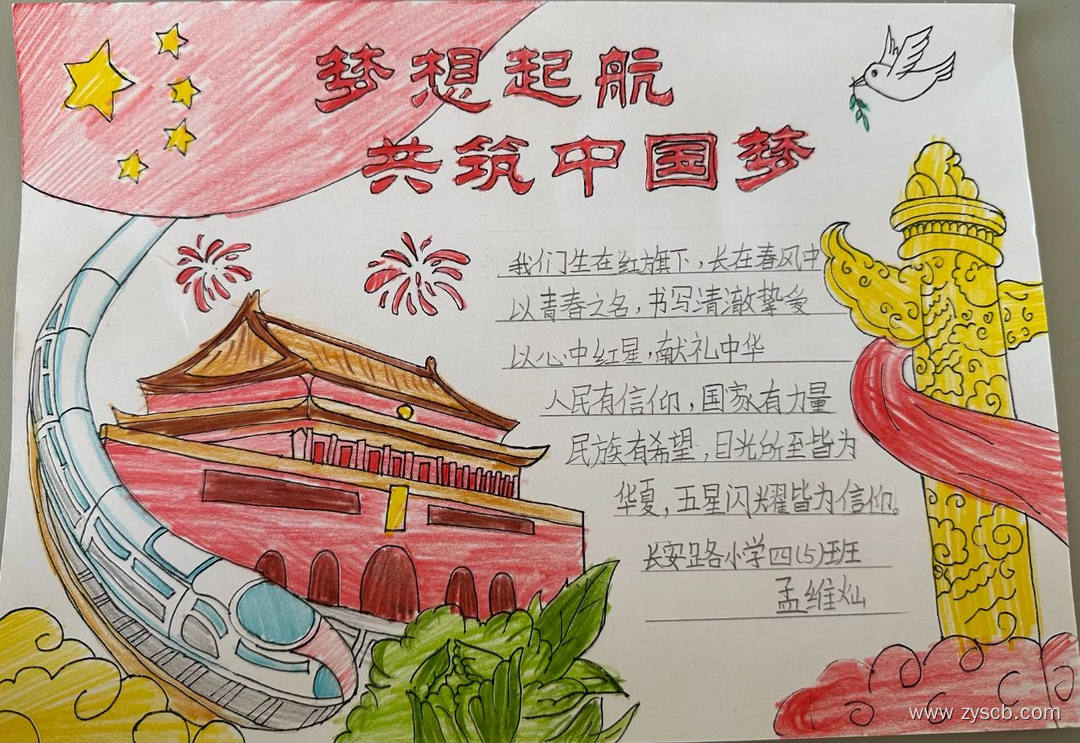 梦想起航
共筑中国梦
我们生在红旗下,长在春风中
以青春之名,书写清澈挚爱
以心中红星,献礼中华
人民有信仰,国家有力量
民族有希望,目光所至皆为
华夏,五星闪耀皆为信仰。
长安路小学四(5)班
孟维灿
www.zyscb.com